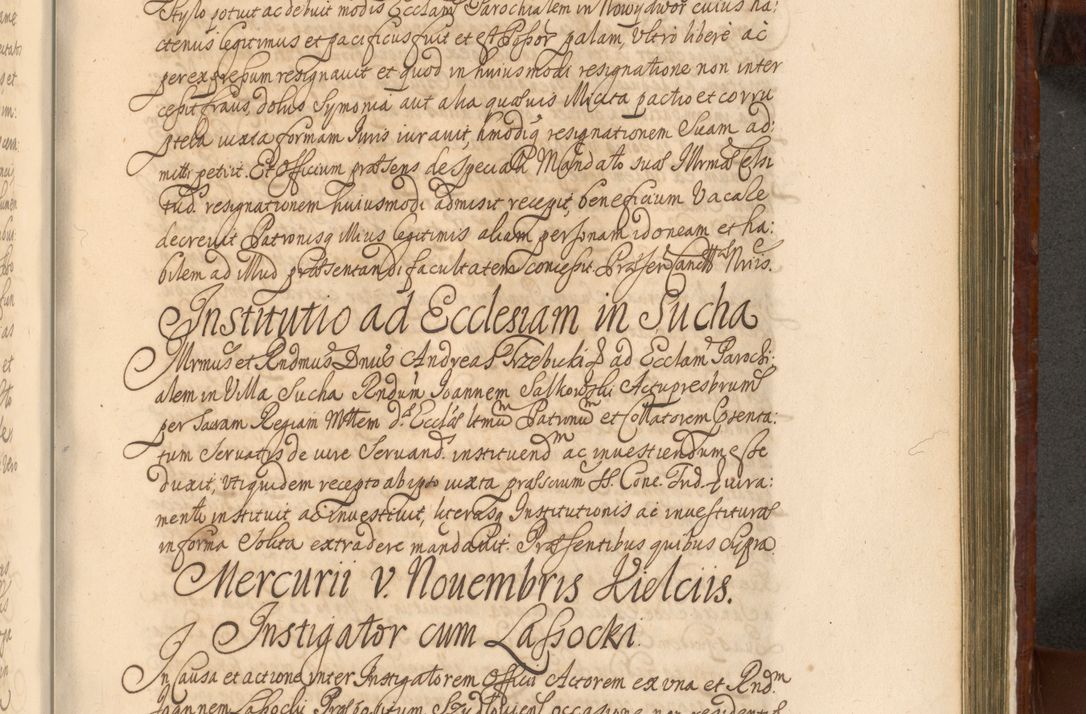 Stylo potuit ac debuit modis Ecclam Parochialem in Nowydwor cuius ha:
ctenus legitimus et pacificus fuit et est Possor palam, Vltro libere ac
per expressum resignauit et quod in huiusmodi resignatione non inter
cessit fraus, dolus Symonia aut alia quaeuis illicita pactio et corru
ptela iuxta formam Iuris iurauit, hmodiq resignationem Suam ad:
mitti petiit. Et Officium praesens de speciali Mandato suae Illrmae Celsi
tud. resignationem huiusmodi admisit recepit, beneficium Vacare
decreuit Patronisq illius legitimis aliam personam idoneam et ha:
bilem ad illud praesentandi facultatem concessit. Praeser
Institutio ad Ecclesiam in Sucha
Illrmus et Rndmus Dnus Andreas Trzebicki ad Ecclam Parochi:
alem in Villa Sucha Rndum Ioannem Salkowski Actu presbrum
per Sacram Regiam Mttem Patronum et Collatorem Praesenta:
tum Seruatis de iure Seruand. instituend ac inuestiendum esse
duxit, Vtiquidem recepto ab ipso iuxta praescrium SS. Conc. Trid. iura:
menti instituit ac inuestiuit, literasq Institutionis ac inuestiturae
in forma Solita extradere mandauit. Praesentibus quibus supra
Mercurii v. Nouembris Kielciis.
Instigator cum Lassocki
In Causa et actione inter Instigatorem Officii Actorem ex vna et Rndm
Ioannem Lassocki Praepositum occasione non residentiae